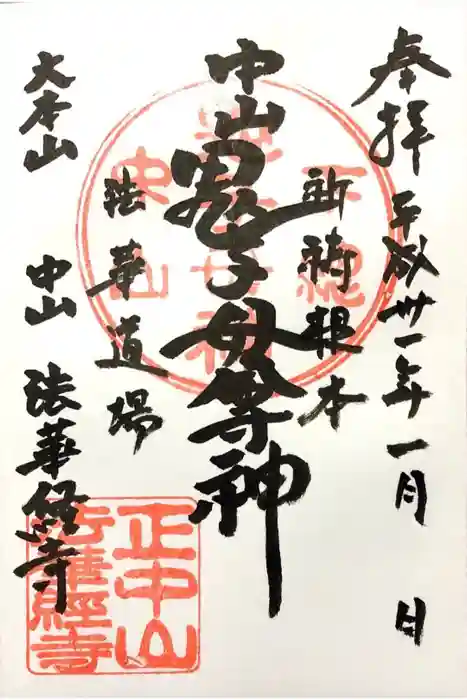 奉拝 平成卅一年一月 日
祈祷根本
中山鬼子母尊神
法華道場
大本山 中山 法華経寺
正中山
法華經寺